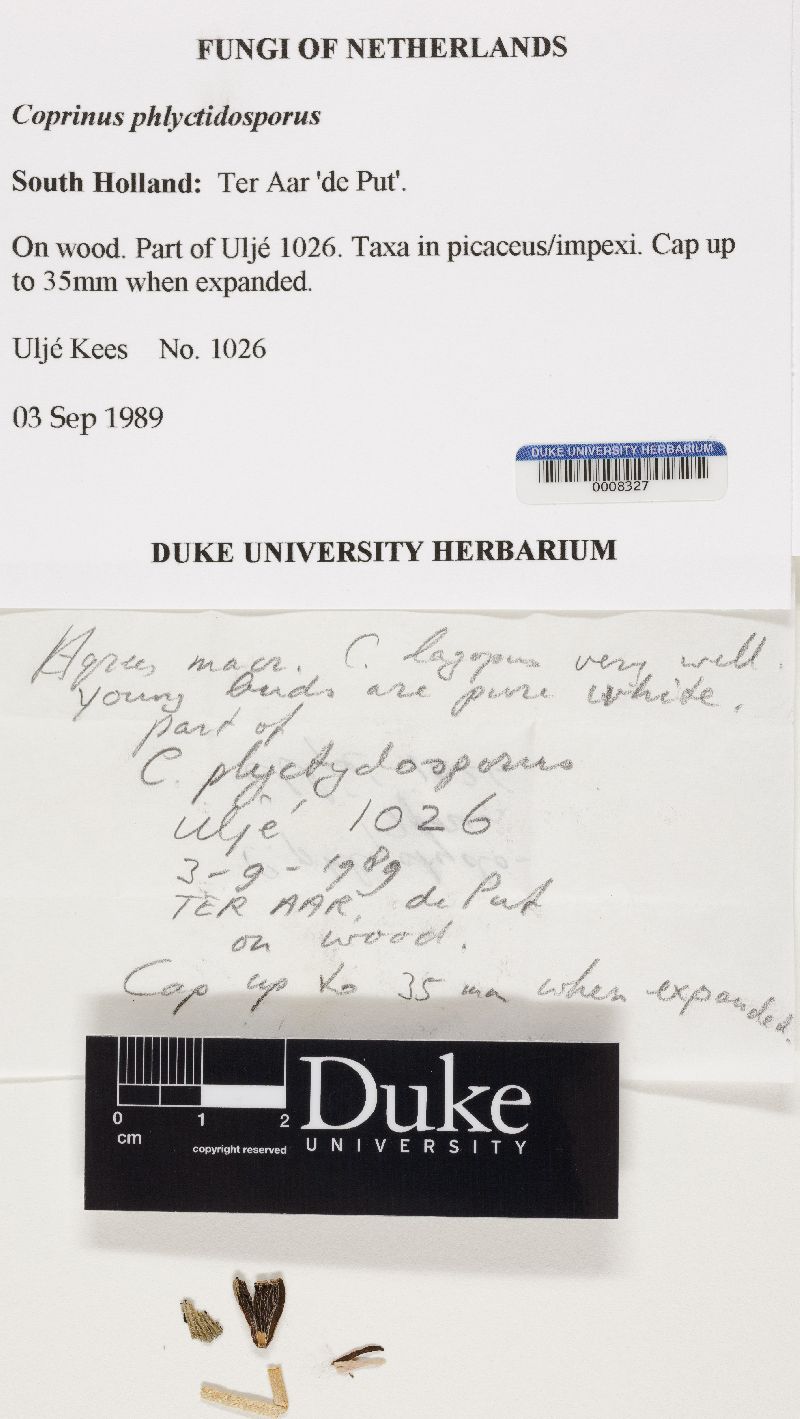 FUNGI OF NETHERLANDS
Coprinus phlyctidosporus
South Holland: Ter Aar 'de Put'.
On wood. Part of Uljé 1026. Taxa in picaceus/impexi. Cap up
to 35mm when expanded.
Uljé Kees No. 1026
03 Sep 1989
DUKE UNIVERSITY HERBARIUM
0008327
DUKE UNIVERSITY HERBARIUM
Agrees macr. C. lagopus very well.
young buds are pure white.
part of
C. plyctydosporus
Uljé 1026
3-9-1989
TER AAR, de Put
on wood.
Cap up to 35 mm when expanded.
0 1 2
cm
copyright reserved
Duke
UNIVERSITY